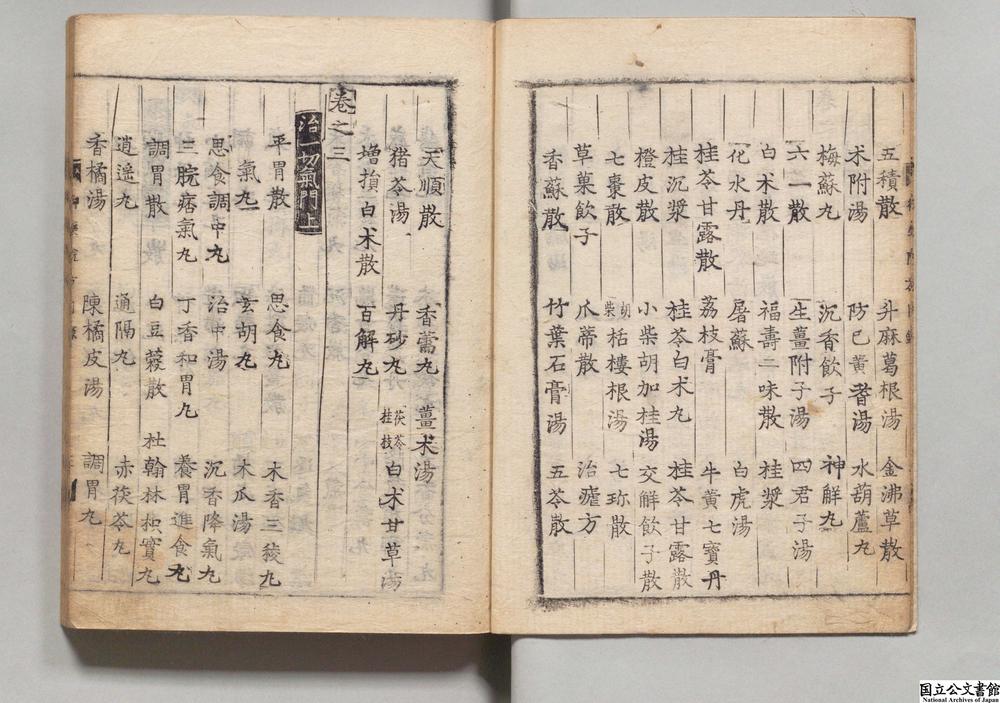 五積散 升麻葛根湯 金沸草散
术附湯 防已黃耆湯 水葫蘆丸
梅蘇丸 沉香飲子 神解丸
六一散 生薑附子湯 四君子湯
白术散 福壽二味散 桂漿
化水丹 屠蘇 白虎湯
桂苓甘露散 荔枝膏 牛黃七寶丹
桂沉漿 桂苓白术丸 桂苓甘露散
橙皮散 小柴胡加桂湯 交解飲子散
七棗散 柴胡栝樓根湯 七珎散
草菓飲子 爪蒂散 治瘧方
香蘇散 竹葉石膏湯 五苓散
大順散 香薷丸 薑术湯
猪苓湯 丹砂丸 茯苓桂枝白术甘草湯
增損白术散 百解丸
卷之三
治一切氣門上
平胃散 思食丸 木香三稜丸
調氣丸 玄胡丸 木瓜湯
思食調中丸 治中湯 沉香降氣丸
三脘痞氣丸 丁香和胃丸 養胃進食丸
調胃散 白豆蔲散 杜翰林枳實丸
逍遥丸 通隔丸 赤茯苓丸
香橘湯 陳橘皮湯 調胃丸
国立公文書館
National Archives of Japan